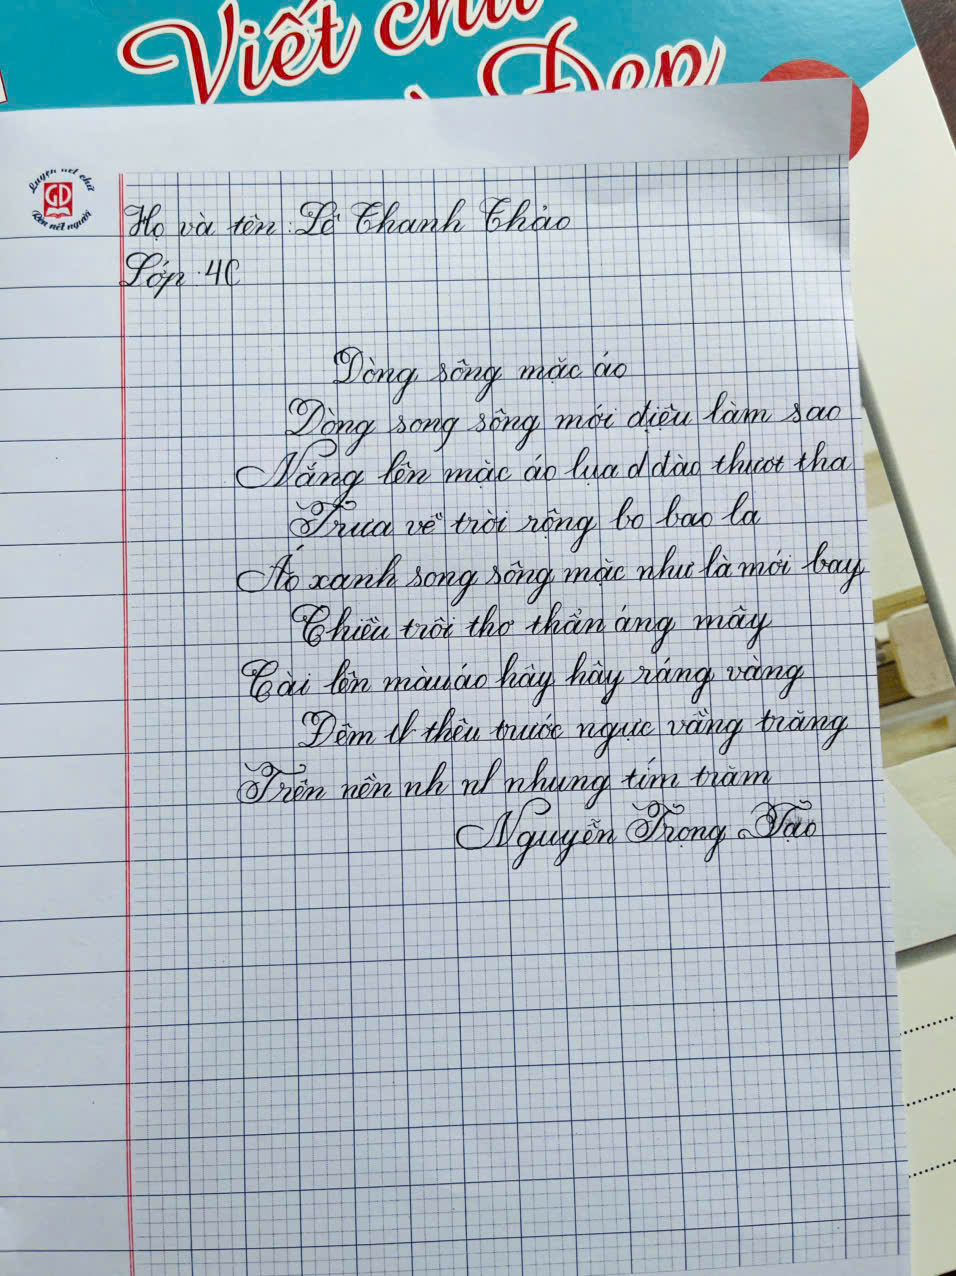 Viết chữ
Đẹp
Luyện nét chữ
GD
Rèn nết người
Họ và tên: Lê Thanh Thảo
Lớp: 4C
Dòng sông mặc áo
Dòng song sông mới điệu làm sao
Nắng lên mặc áo lụa d đào thướt tha
Trưa về trời rộng bo bao la
Áo xanh song sông mặc như là mới bay
Chiều trôi thơ thẩn áng mây
Cài lên màu áo hây hây ráng vàng
Đêm th thêu trước ngực vầng trăng
Trên nền nh nh nhung tím trăm
Nguyễn Trọng Tạo